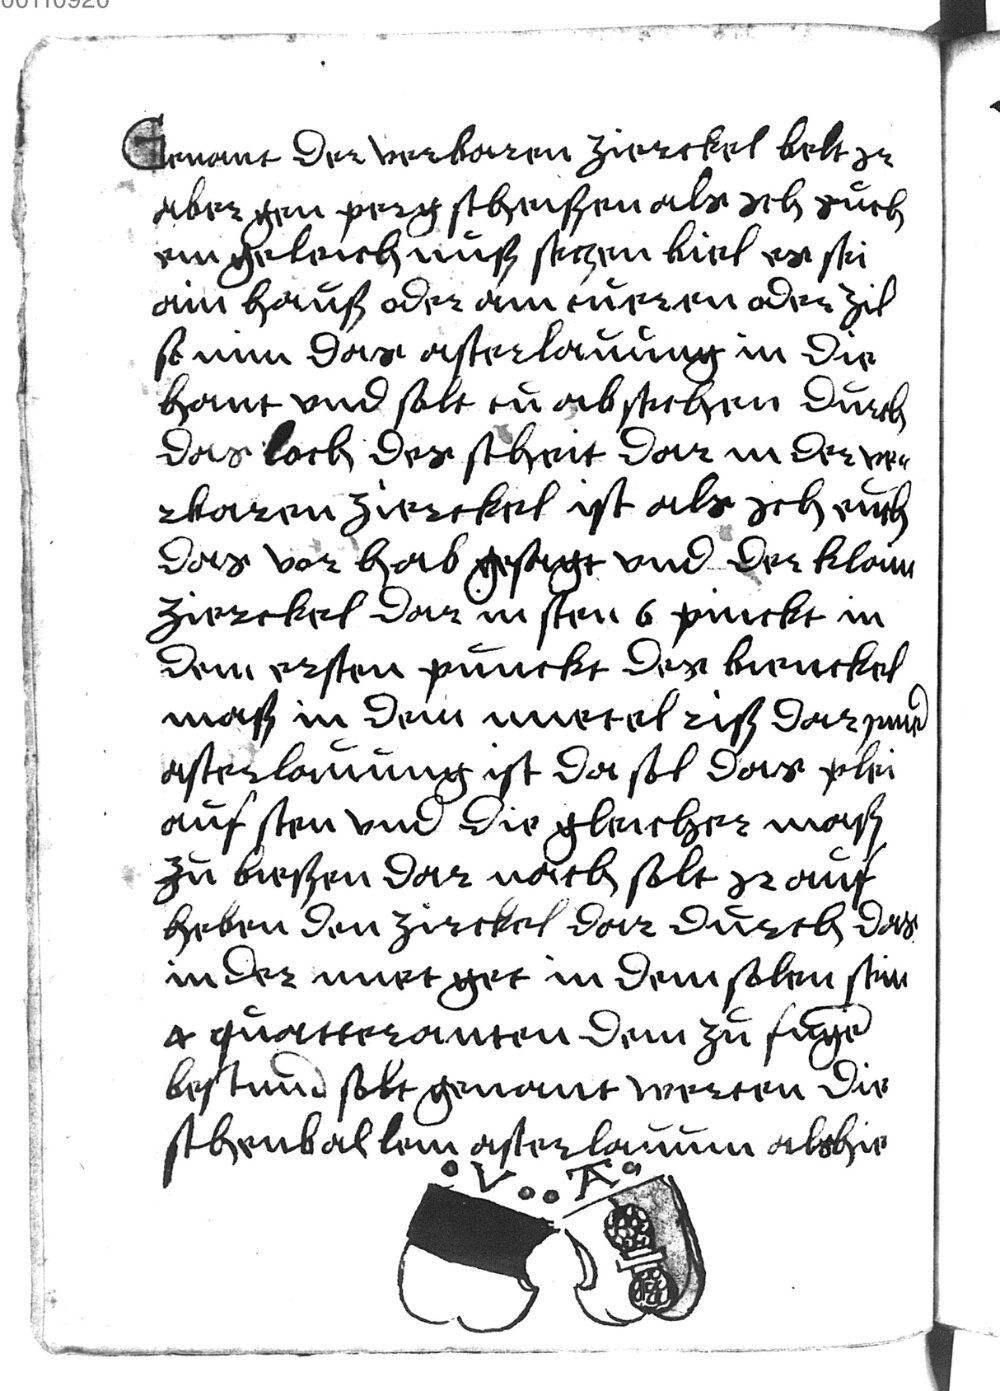 00110920
Genant der verbaren zierckel belt jr
aber gen perg scheißen als jch euch
ein geleichnuß seczen biel es sei
ain hauß oder ain tueren oder zil
so nim das asterlauuung in die
hant vnd solt tu absechen durch
das loch des scheit dar in der ver
rbaren zierckel ist als jch euch
das vor hab gesagt vnd der klain
zierckel dar in sten 6 pinckt in
dem ersten punckt des bienckel
maß in dem mietel riß dar
asterlauuung ist da sol das plei
auf sten vnd die gleicher maß
zu bießen dar nach solt jr auf
heben den zirckel dar durch das
in der miet get in dem solen sein
4 quatteranten dem zu
bestund solt genant werten die
schenballem asterlauum als hie
V A